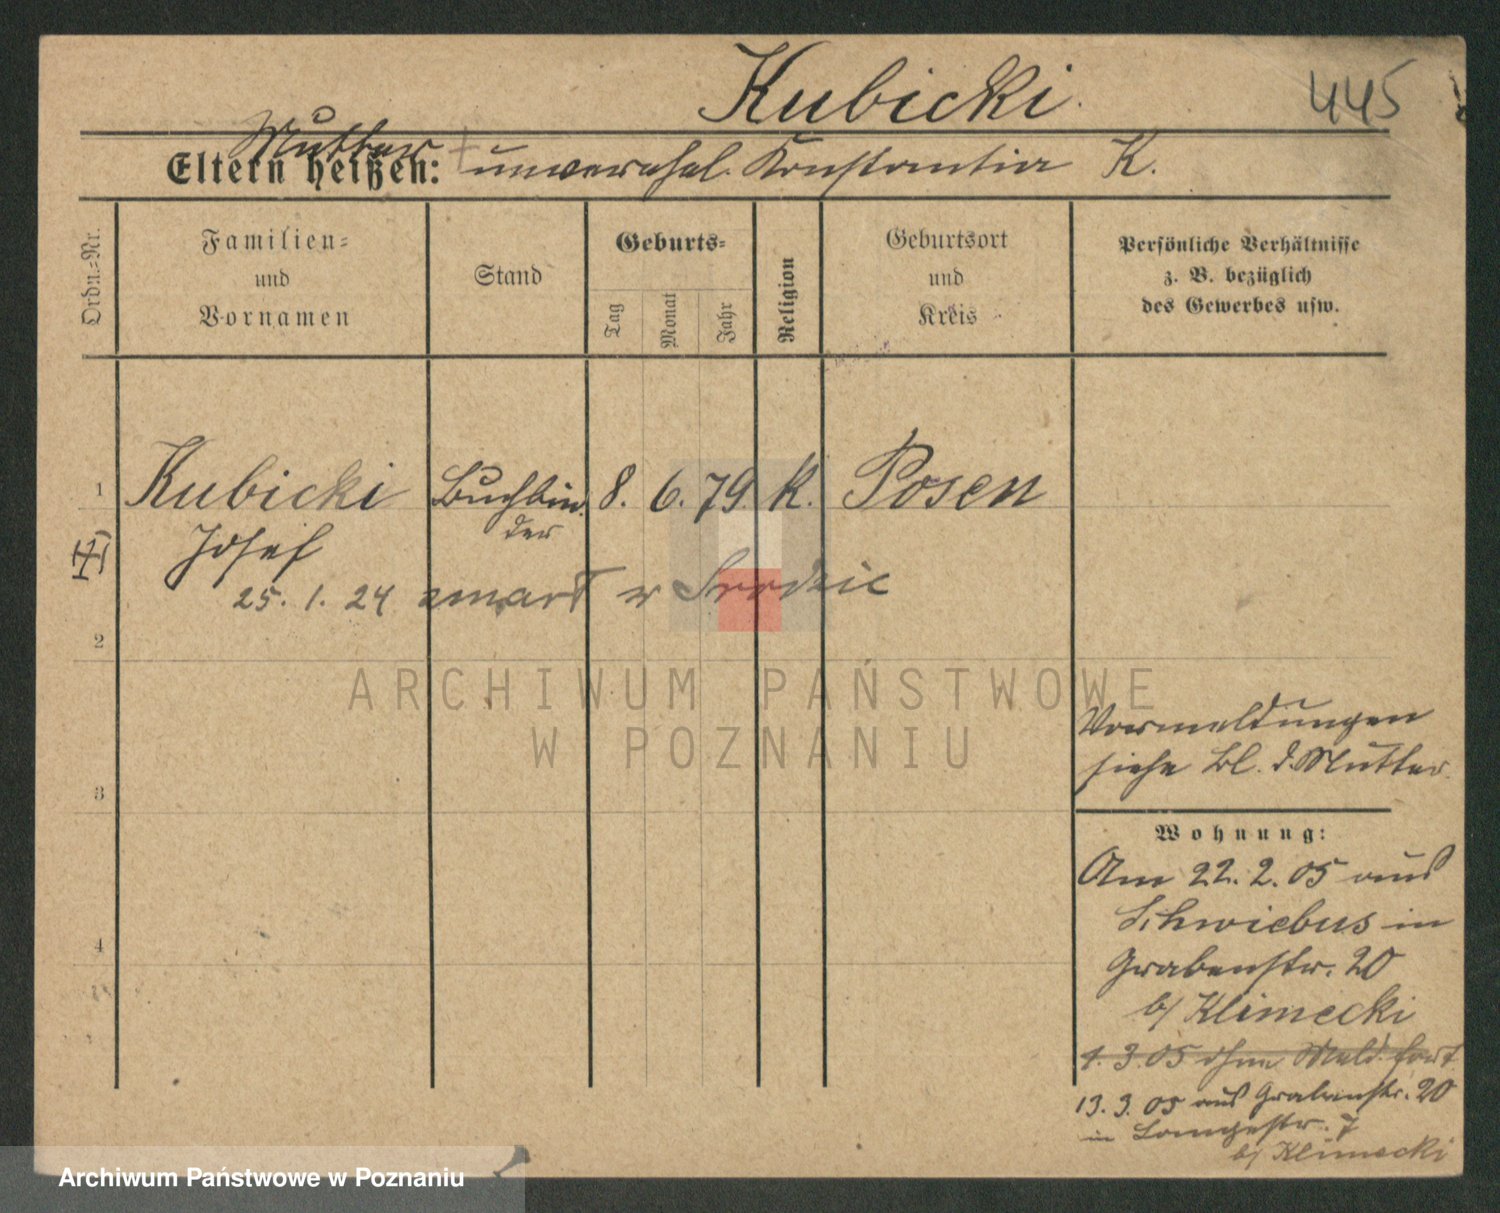 Kubicki.
445
Mutter
Eltern heißen: + unverehel. Konstantia K.
Ordn.-Nr.
Familien-
und
Vornamen
Stand
Geburts-
Tag
Monat
Jahr
Religion
Geburtsort
und
Kreis
Persönliche Verhältnisse
z. B. bezüglich
des Gewerbes usw.
1 Kubicki Buchbin- 8. 6. 79. K. Posen
Josef der
25. 1. 24 zmarł w
2
ARCHIWUM PAŃSTWOWE
W POZNANIU
Vormeldungen
siehe Bl. d. Mutter.
3
Wohnung:
Am 22. 2. 05 aus
Schwiebus in
Grabenstr. 20
b/ Klimecki
4
4. 3. 05 ohne Meld. fort
13. 3. 05 aus Grabenstr. 20
in Langestr. 7
b/ Klimecki
Archiwum Państwowe w Poznaniu